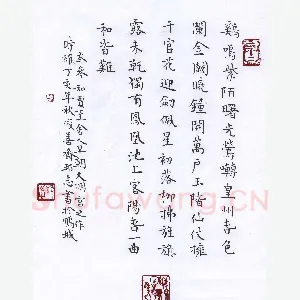 鷄鳴紫陌曙光鶯囀皇州春色
闌金闕曉鐘開萬户玉階仙仗擁
千官花迎劍佩星初落柳拂旌旗
露未乾獨有鳳凰池上客陽春一曲
和皆難
岑參和賈至舍人早朝大明宮之作
時維丁亥年秋善齋書於
Shufawang.CN